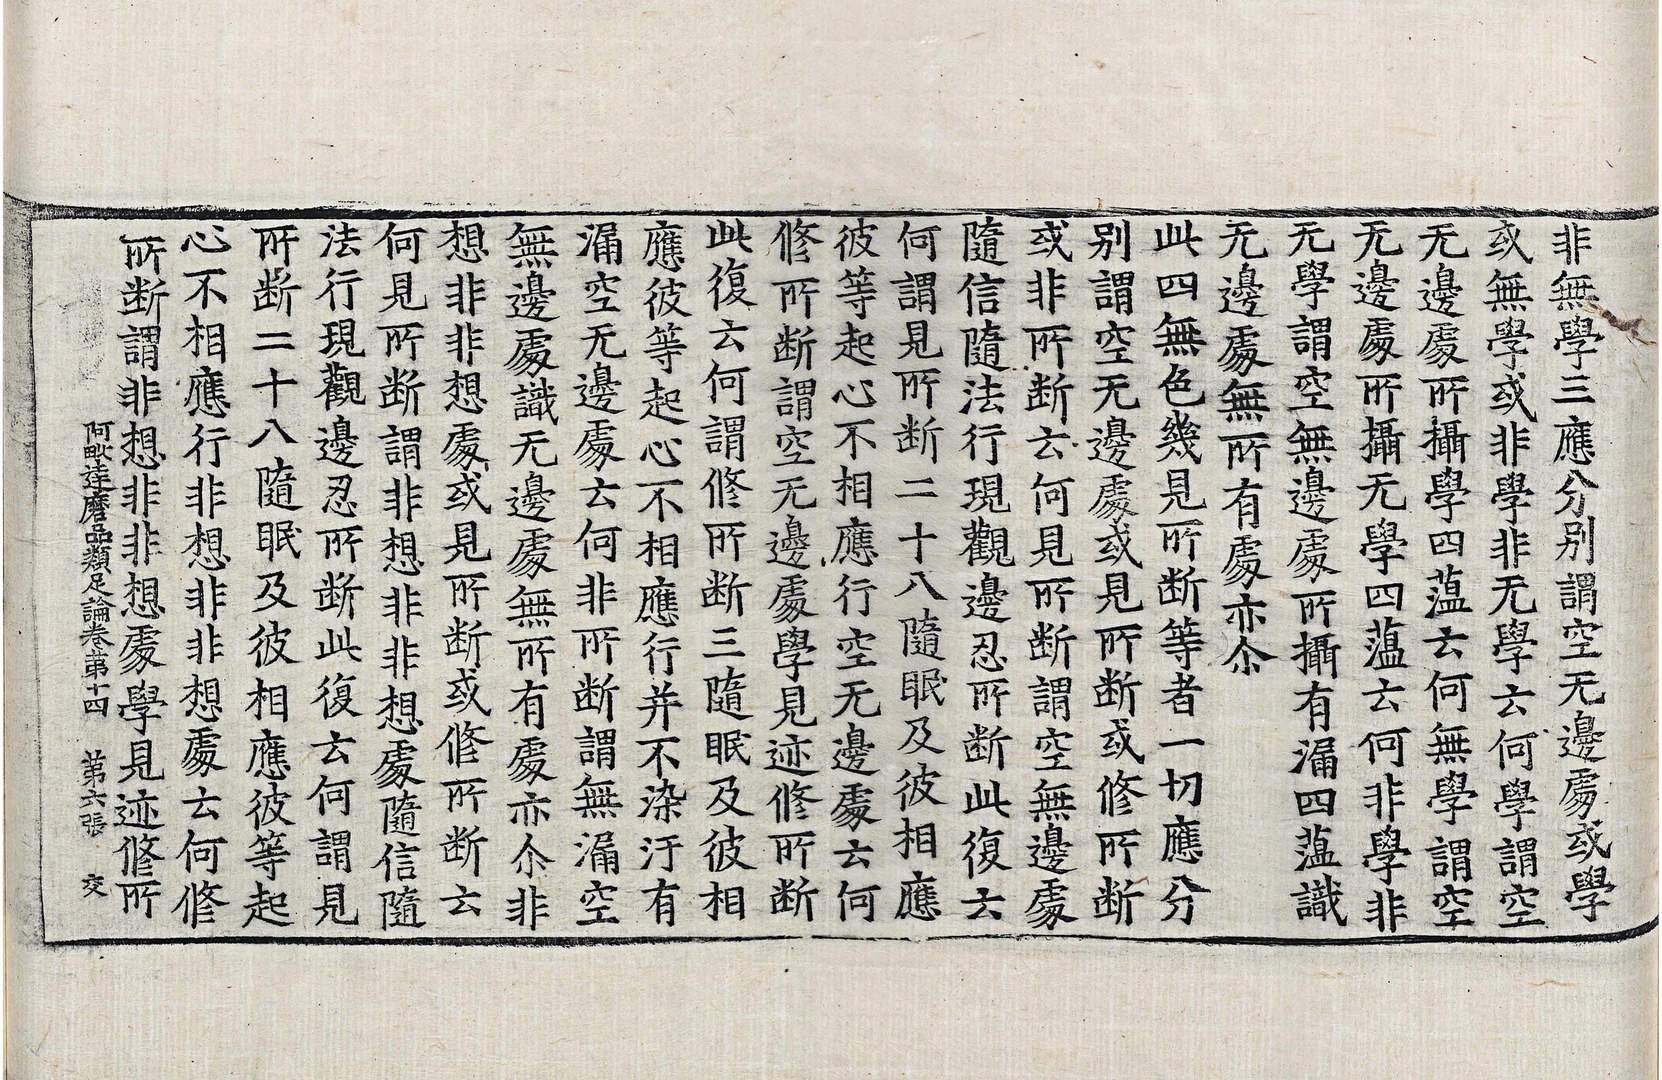 非無學三應分別謂空无邊處或學
或無學或非學非无學云何學謂空
无邊處所攝學四蕰云何無學謂空
无邊處所攝无學四蕰云何非學非
无學謂空無邊處所攝有漏四蕰識
无邊處無所有處亦尒
此四無色幾見所断等者一切應分
別謂空无邊處或見所断或修所断
或非所断云何見所断謂空無邊處
隨信隨法行現觀邊忍所断此復云
何謂見所断二十八隨眠及彼相應
彼等起心不相應行空无邊處云何
修所断謂空无邊處學見迹修所断
此復云何謂修所断三隨眠及彼相
應彼等起心不相應行并不染汙有
漏空无邊處云何非所断謂無漏空
無邊處識无邊處無所有處亦尒非
想非非想處或見所断或修所断云
何見所断謂非想非非想處隨信隨
法行現觀邊忍所断此復云何謂見
所断二十八隨眠及彼相應彼等起
心不相應行非想非非想處云何修
所断謂非想非非想處學見迹修所
阿毗達磨品類足論卷第十四 第六張 交